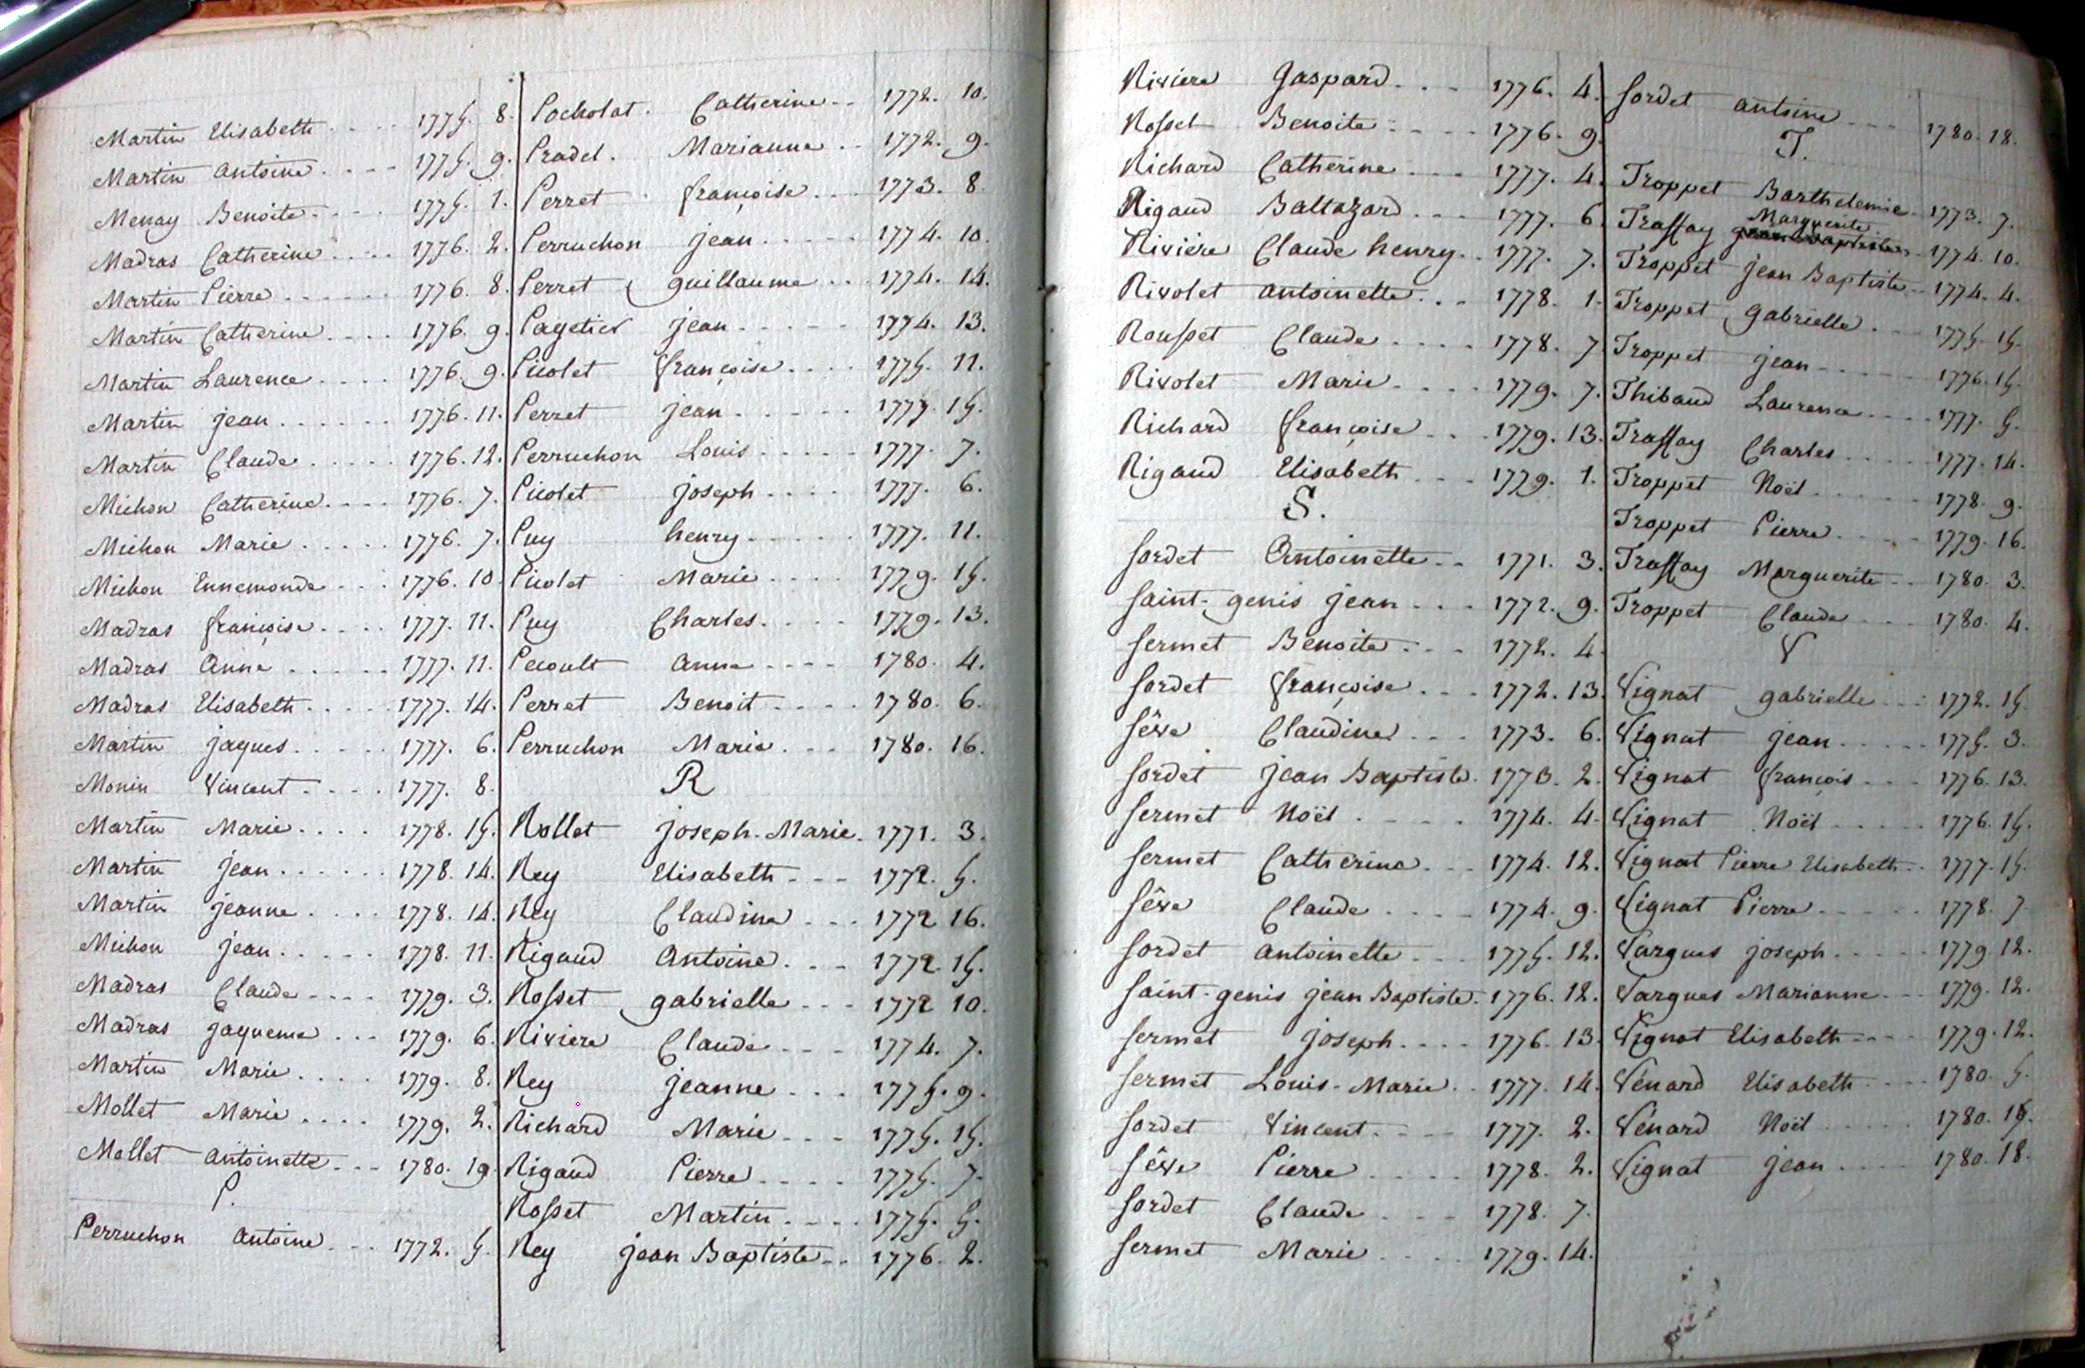 Martin Elisabeth . . . . 1775. 8.
Martin antoine . . . . 1775. 9.
Menay Benoite . . . . 1775. 1.
Madras Catherine . . . . 1776. 2.
Martin Pierre . . . . . . 1776. 8.
Martin Catherine . . . . 1776. 9.
Martin Laurence . . . . 1776. 9.
Martin jean . . . . . . 1776. 11.
Martin Claude . . . . . 1776. 12.
Michon Catherine . . . . 1776. 7.
Michon Marie . . . . . 1776. 7.
Michon Ennemonde . . . 1776. 10.
Madras françoise . . . . 1777. 11.
Madras Anne . . . . . 1777. 11.
Madras Elisabeth . . . . . 1777. 14.
Martin jaques . . . . . 1777. 6.
Monin Vincent . . . . 1777. 8.
Martin Marie . . . . 1778. 15.
Martin jean . . . . . . 1778. 14.
Martin jeanne . . . . 1778. 14.
Michon jean . . . . . 1778. 11.
Madras Claude . . . . 1779. 3.
Madras jaqueme . . . 1779. 6.
Martin Marie . . . . 1779. 8.
Mollet Marie . . . . 1779. 2.
Mollet antoinette . . . 1780. 19.
P.
Perruchon antoine . . . 1772. 5.
Pocholat. Catherine . . 1772. 10.
Pradel. Marianne . . 1772. 9.
Perret françoise . . . 1773. 8.
Perruchon jean . . . . . 1774. 10.
Perret guillaume . . . 1774. 14.
Pagetier jean . . . . . 1774. 13.
Picolet françoise . . . . 1775. 11.
Perret jean . . . . . 1777. 15.
Perruchon Louis . . . . . 1777. 7.
Picolet joseph . . . . 1777. 6.
Puy henry . . . . . 1777. 11.
Picolet Marie . . . . 1779. 15.
Puy Charles . . . . 1779. 13.
Pecoult anne . . . . 1780. 4.
Perret Benoit . . . . 1780. 6.
Perruchon Marie . . . 1780. 16.
R
Rollet joseph-Marie. 1771. 3.
Rey Elisabeth . . . 1772. 5.
Rey Claudine . . . 1772 16.
Rigaud Antoine . . . 1772. 15.
Rosset gabrielle . . . 1772 10.
Riviere Claude . . . 1774. 7.
Rey jeanne . . . 1775. 9.
Richard Marie . . . 1775. 15.
Rigaud Pierre . . . . 1775. 7.
Rosset Martin . . . . 1775. 5.
Rey jean Baptiste . . 1776. 2.
Riviere Gaspard . . . 1776. 4.
Rosset Benoite . . . . 1776. 9.
Richard Catherine . . . 1777. 4.
Rigaud Baltazard . . . 1777. 6.
Riviére Claude henry . . 1777. 7.
Rivolet antoinette . . . 1778. 1.
Rousset Claude . . . . 1778. 7.
Rivolet Marie . . . . 1779. 7.
Richard françoise . . . 1779. 13.
Rigaud Elisabeth . . . 1779. 1.
S.
Sordet Antoinette . . 1771. 3.
Saint-genis jean . . . 1772. 9.
Sermet Benoite . . . 1772. 4.
Sordet françoise . . . 1772. 13.
Sêve Claudine . . . 1773. 6.
Sordet jean Baptiste. 1773. 2.
Sermet Noël . . . . 1774. 4.
Sermet Catherine . . . 1774. 12.
Sêve Claude . . . . 1774. 9.
Sordet antoinette . . . 1775. 12.
Saint-genis jean Baptiste. 1776. 12.
Sermet joseph . . . . 1776. 13.
Sermet Louis-Marie . . 1777. 14.
Sordet Vincent . . . . 1777. 2.
Sêve Pierre . . . . 1778. 2.
Sordet Claude . . . 1778. 7.
Sermet Marie . . . . 1779. 14.
Sordet antoine . . . 1780. 18.
T.
Troppet Barthelemie. 1773. 7.
Marguerite
Traffay 1774. 10.
Troppet jean Baptiste . . 1774. 4.
Troppet gabrielle . . . 1775. 15.
Troppet jean . . . . . 1776. 15.
Thibaud Laurence . . . . 1777. 5.
Traffay Charles . . . . 1777. 14.
Troppet Noël . . . . . . 1778. 9.
Troppet Pierre . . . . . 1779. 16.
Traffay Marguerite . . 1780. 3.
Troppet Claude . . . 1780. 4.
V
Vignat gabrielle . . . 1772. 15.
Vignat jean . . . . . 1775. 3.
Vignat françois . . . 1776. 13.
Vignat Noël . . . . . 1776. 15.
Vignat Pierre Elisabeth . . 1777. 15.
Vignat Pierre . . . . . . 1778. 7.
Vargues joseph . . . . . 1779 12.
Vargues Marianne . . . 1779. 12.
Vignat Elisabeth . . . . 1779. 12.
Vénard Elisabeth . . . . 1780. 5.
Vénard Noël . . . . . 1780.
Vignat jean . . . . 1780. 18.